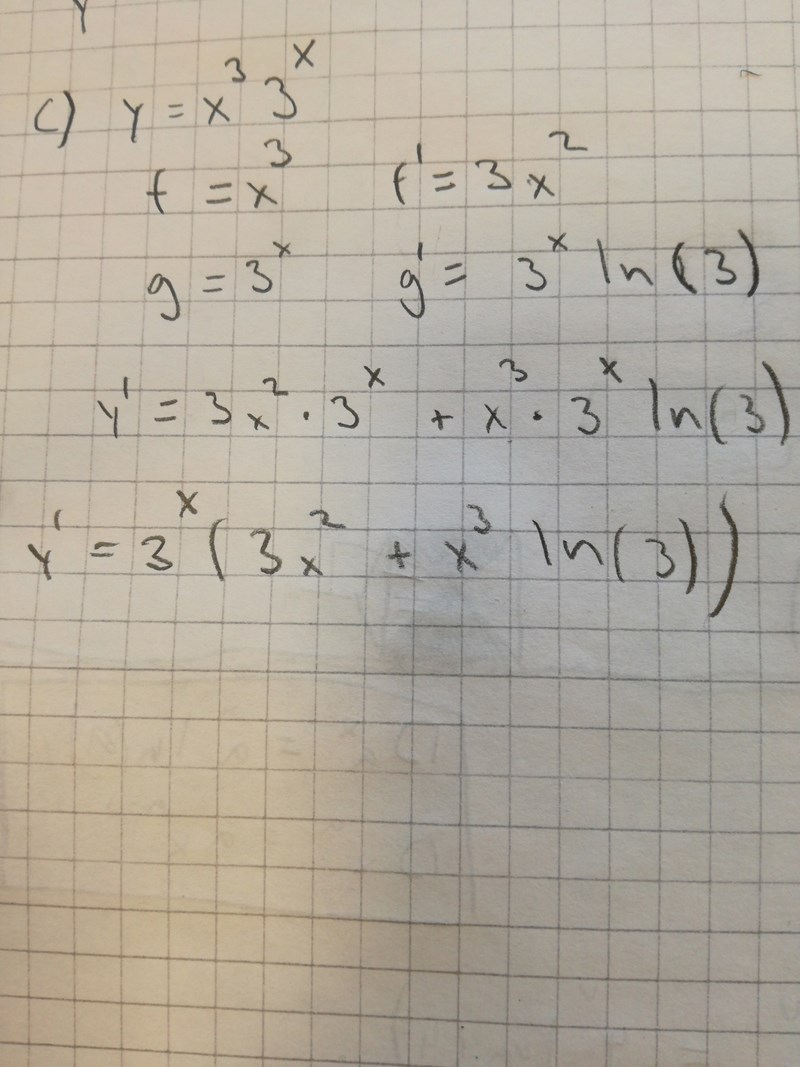 c) y = x³ 3ˣ
f = x³ f' = 3x²
g = 3ˣ g' = 3ˣ ln(3)
y' = 3x² · 3ˣ + x³ · 3ˣ ln(3)
y' = 3ˣ (3x² + x³ ln(3))